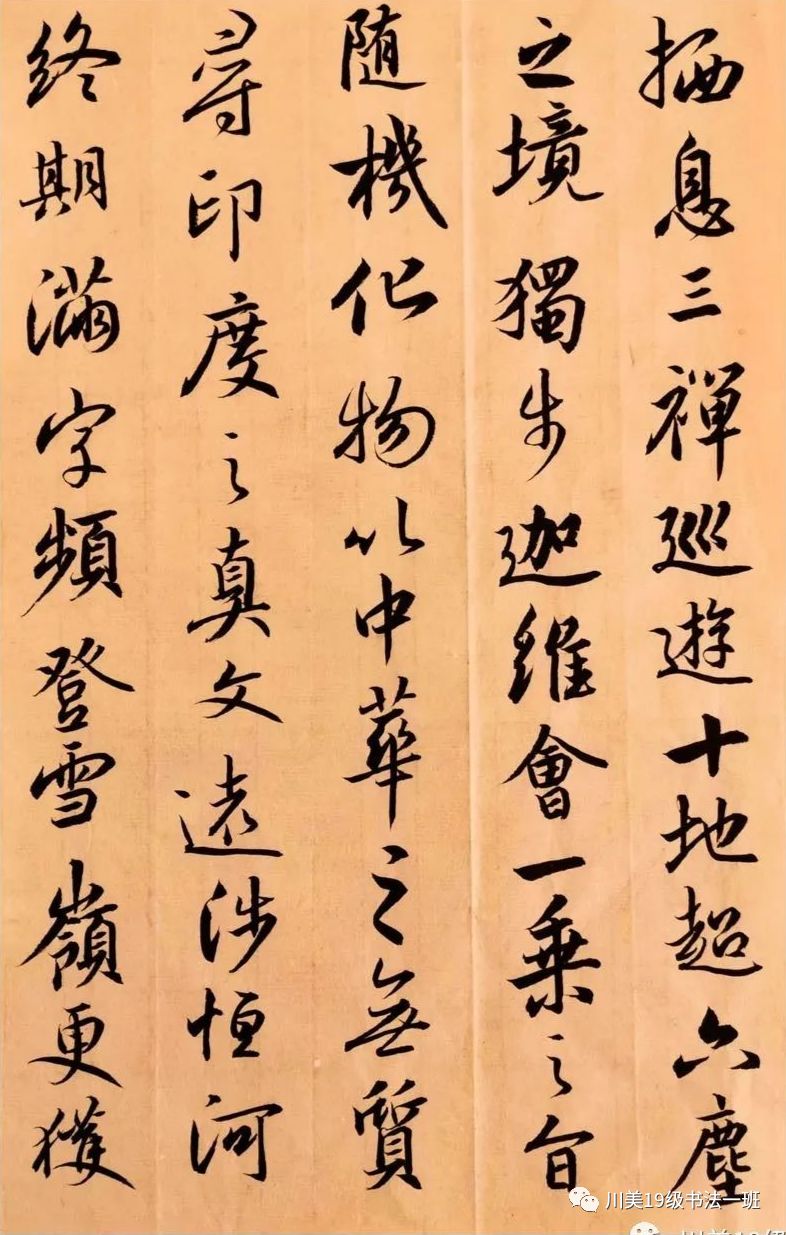 栖息三禪巡遊十地超六塵
之境獨步迦維會一乘之旨
随機化物以中華之無質
尋印度之真文遠涉恒河
終期滿字頻登雪嶺更獲
川美19级书法一班